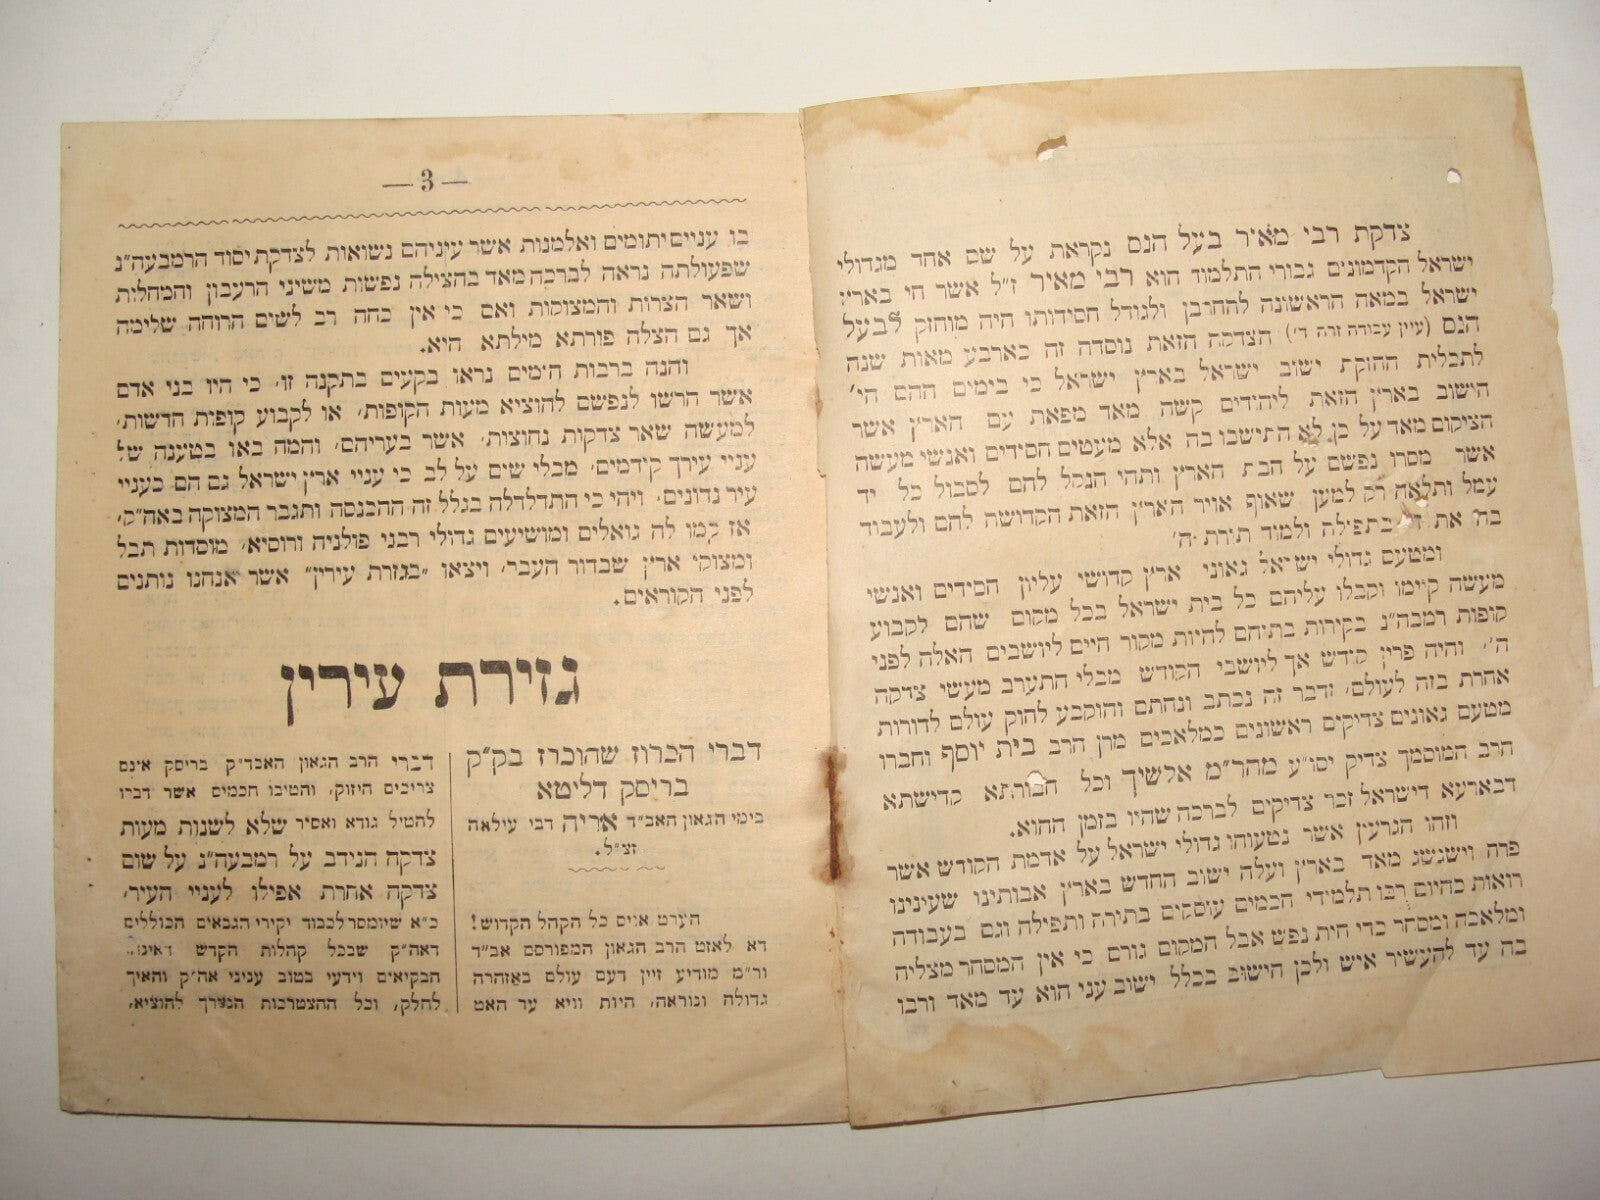 צדקת רבי מאיר בעל הנס נקראת על שם אחד מגדולי
ישראל הקדמונים גבורי התלמוד הוא רבי מאיר ז"ל אשר חי בארץ
ישראל במאה הראשונה להחרבן ולגודל חסידותו היה מוחזק לבעל
הנס (עיין עבודה זרה ד') הצדקה הזאת נוסדה זה כארבע מאות שנה
לתכלית החזקת ישוב ישראל בארץ ישראל כי בימים ההם הי'
הישוב בארץ הזאת ליהודים קשה מאד מפאת עם הארץ אשר
הציקום מאד על כן לא התישבו בה אלא מעטים חסידים ואנשי מעשה
אשר מסרו נפשם על חבת הארץ ותהי הנקל להם לסבול כל יד
עמל ותלאה רק למען שאוף אויר הארץ הזאת הקדושה להם ולעבוד
בה את ד' בתפילה ולמוד תורת ה'
ומטעם גדולי ישראל גאוני ארץ קדושי עליון חסידים ואנשי
מעשה קיימו וקבלו עליהם כל בית ישראל בכל מקום שהם לקבוע
קופות רמבה"נ בקירות בתיהם להיות מקור חיים ליושבים האלה לפני
ה', והיה פרין קודש אך ליושבי הקודש מבלי התערב מעשי צדקה
אחרת בזה לעולם, ודבר זה נכתב ונחתם והוקבע לחוק עולם לדורות
מטעם גאונים צדיקים ראשונים כמלאכים מרן הרב בית יוסף וחברו
הרב המוסמך צדיק יסו"ע מהר"מ אלשיך וכל חבורתא קדישתא
דבארעא דישראל זכר צדיקים לברכה שהיו בזמן ההוא.
וזהו הגרעין אשר נטעוהו גדולי ישראל על אדמת הקודש אשר
פרה וישגשג מאד בארץ ועלה ישוב החדש בארץ אבותינו שעינינו
רואות כהיום רבו תלמידי חכמים עוסקים בתורה ותפילה וגם בעבודה
ומלאכה ומסחר כדי חית נפש אבל המקום גורם כי אין המסחר מצליח
בה עד להעשיר איש ולכן הישוב בכלל ישוב עני הוא עד מאד ורבו
— 3 —
בו עניים יתומים ואלמנות אשר עיניהם נשואות לצדקת יסוד הרמבעה"נ
שפעולתה נראה לברכה מאד בהצילה נפשות משיני הרעבון והמחלות
ושאר הצרות והמצוקות ואם כי אין כחה רב לשים הרוחה שלימה
אך גם הצלה פורתא מילתא היא.
והנה ברבות הימים נראו בקעים בתקנה זו, כי היו בני אדם
אשר הרשו לנפשם להוציא מעות הקופות, או לקבוע קופות חדשות,
למעשה שאר צדקות נחוצות, אשר בעריהם, והמה באו בטענה של
עניי עירך קודמים, מבלי שים על לב כי עניי ארץ ישראל גם הם כעניי
עיר נדונים, ויהי כי התדלדלה בגלל זה ההכנסה ותגבר המצוקה באה"ק,
אז קמו לה גואלים ומושיעים גדולי רבני פולניה ורוסיא, מוסדות תבל
ומצוקי ארץ שבדור העבר, ויצאו "בגזרת עירין" אשר אנחנו נותנים
לפני הקוראים.
גזירת עירין
דברי הכרוז שהוכרז בק"ק
בריסק דליטא
בימי הגאון האב"ד אריה דבי עילאה
זצ"ל.
הערט אויס כל הקהל הקדוש!
דא לאזט הרב הגאון המפורסם אב"ד
ור"מ מודיע זיין דעם עולם באזהרה
גדולה ונוראה, היות וויא עד האט
דברי הרב הגאון האבד"ק בריסק אינם
צריכים חיזוק, והטיבו חכמים אשר דברו
להטיל גודא ואסיר שלא לשנות מעות
צדקה הנידב על רמבעה"נ על שום
צדקה אחרת אפילו לעניי העיר,
כ"א שיומסר לכבוד יקירי הגבאים הכוללים
דאה"ק שבכל קהלות הקדש דאינון
הבקיאים וידעי בטוב עניני אה"ק והאיך
לחלק, וכל ההצטרכות הנצרך להוציא,